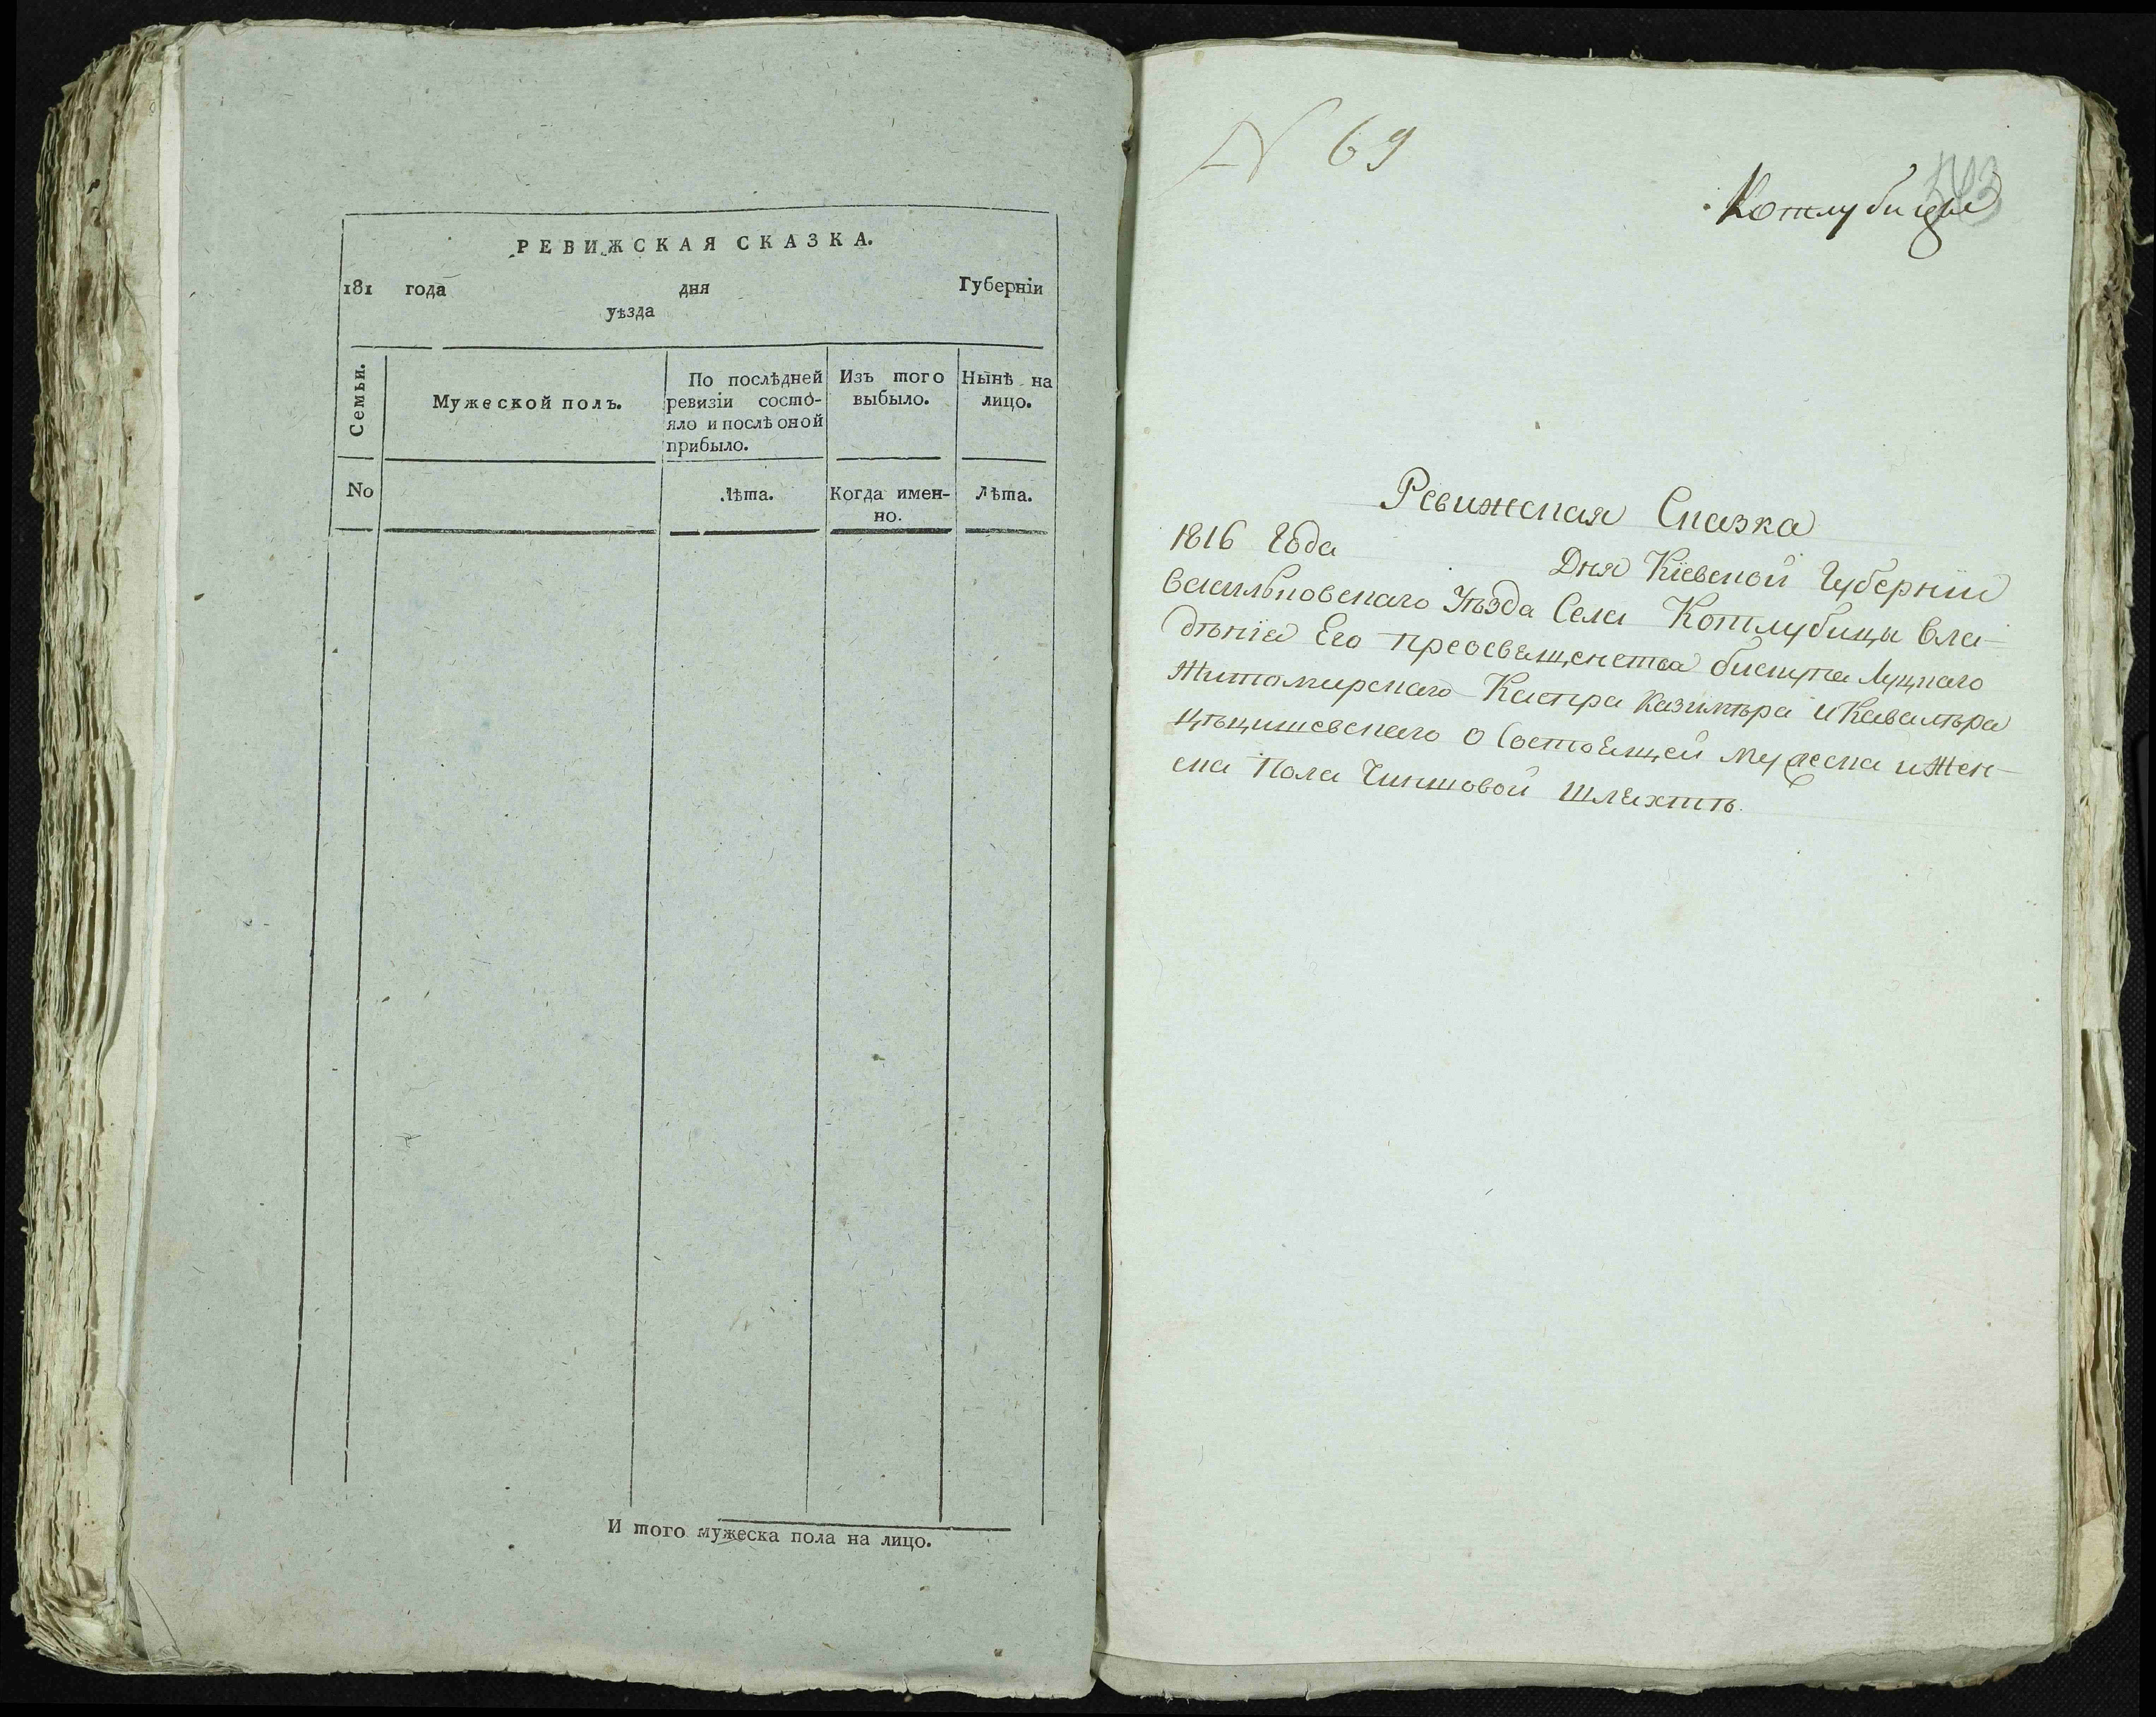 РЕВИЖСКАЯ СКАЗКА.
181 года дня Губернїи
уѣзда
Семьи.
Мужеской полъ.
По послѣдней
ревизїи состо-
яло и послѣ оной
прибыло.
Изъ того
выбыло.
Нынѣ на
лицо.
No
Лѣта.
Когда имен-
но.
Лѣта.
И того мужеска пола на лицо.
N 69
Котлубицы
Ревижская Сказка
1816 Года Дня Кїевской Губернїи
Васильковскаго Уѣзда Села Котлубицы вла-
дѣнїа Его преосвященства бискупа Луцкаго
Житомирскаго Каспра Казимѣра и Кавалѣра
Цѣцишевскаго о Состоящей Мужеска и Жен-
ска Пола Чиншовой шляхтѣ.